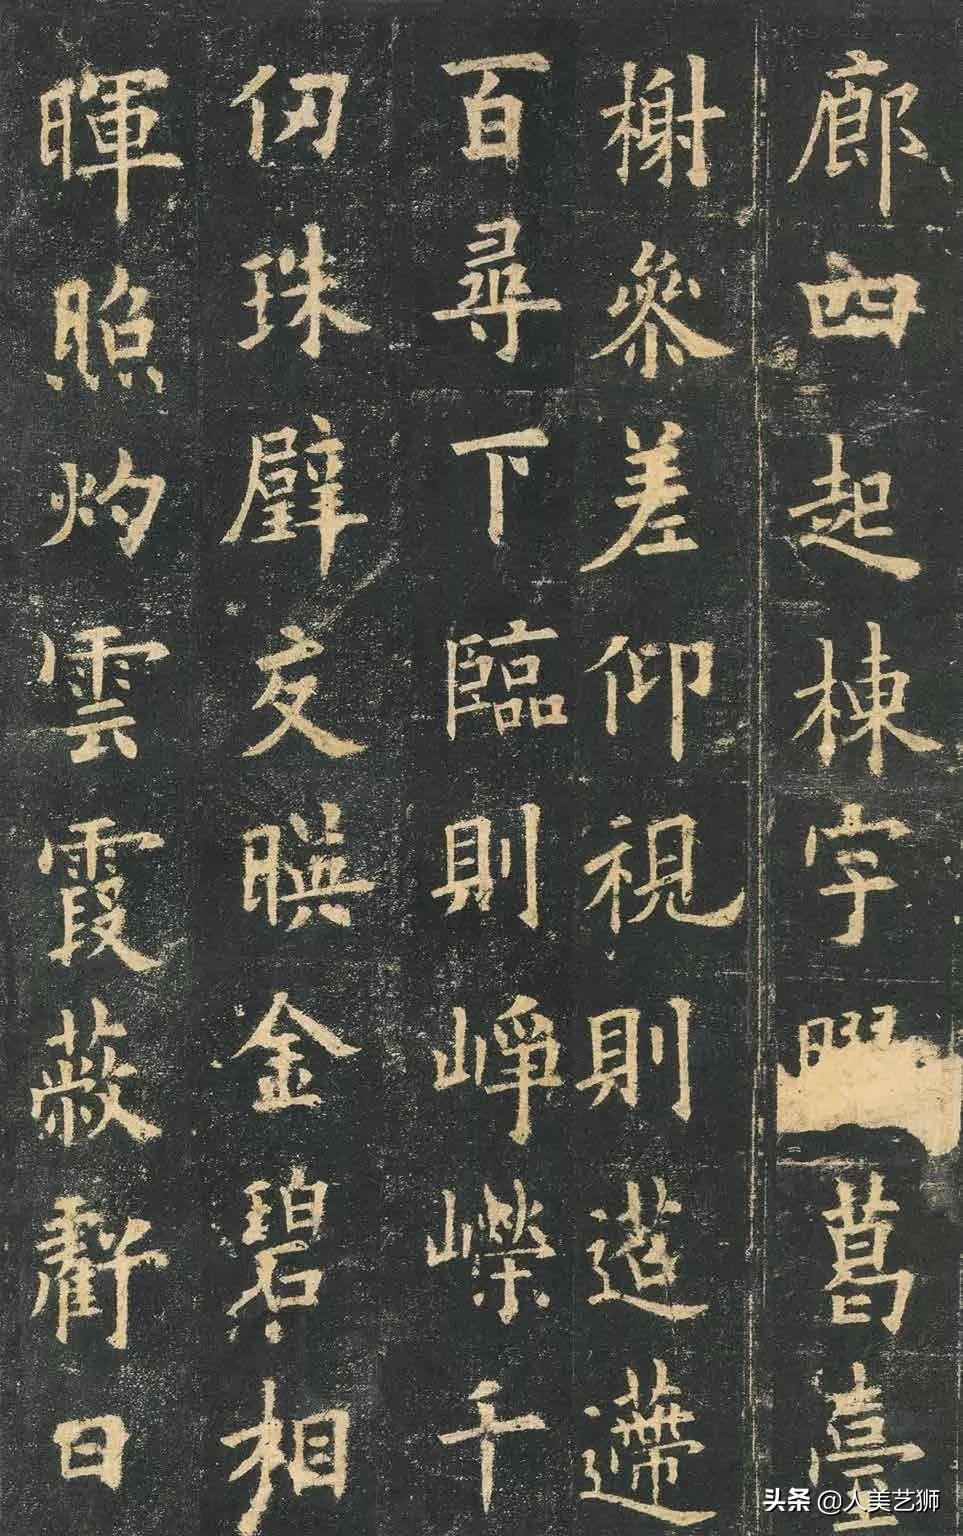 廊四起棟宇葛臺
榭參差仰視則迢遰
百尋下臨則崢嶸千
仞珠璧交暎金碧相
暉照灼雲霞蔽虧日
头条 @人美艺狮